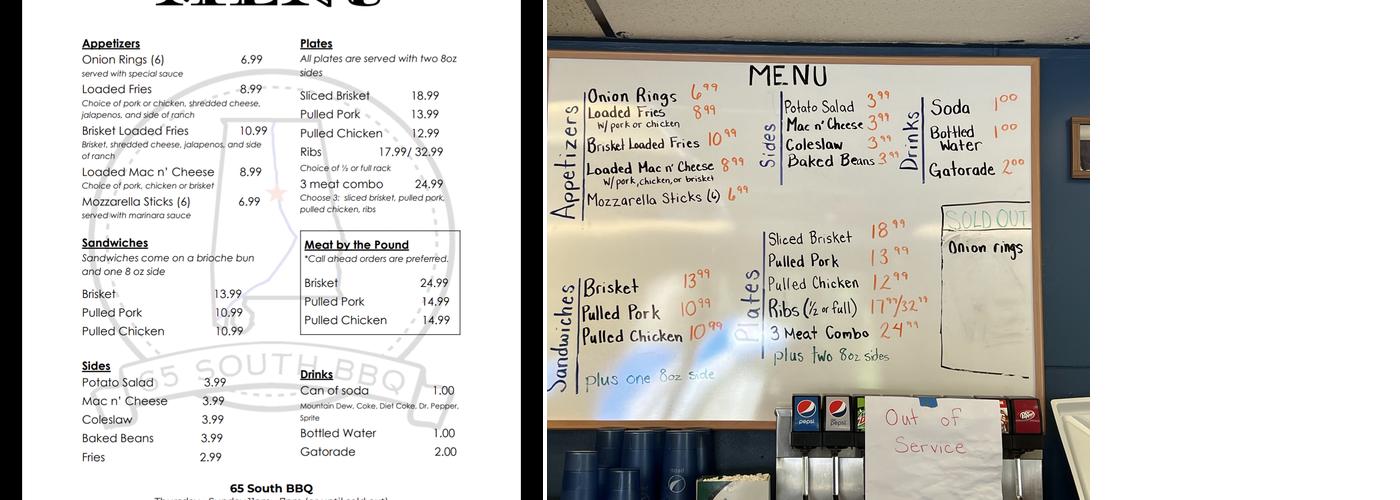 MENU
Appetizers
Onion Rings (6) 6.99
served with special sauce
Loaded Fries 8.99
Choice of pork or chicken, shredded cheese,
jalapenos, and side of ranch
Brisket Loaded Fries 10.99
Brisket, shredded cheese, jalapenos, and side
of ranch
Loaded Mac n' Cheese 8.99
Choice of pork, chicken or brisket
Mozzarella Sticks (6) 6.99
served with marinara sauce
Sandwiches
Sandwiches come on a brioche bun
and one 8 oz side
Brisket 13.99
Pulled Pork 10.99
Pulled Chicken 10.99
Sides
Potato Salad 3.99
Mac n' Cheese 3.99
Coleslaw 3.99
Baked Beans 3.99
Fries 2.99
Plates
All plates are served with two 8oz
sides
Sliced Brisket 18.99
Pulled Pork 13.99
Pulled Chicken 12.99
Ribs 17.99/ 32.99
Choice of ½ or full rack
3 meat combo 24.99
Choose 3; sliced brisket, pulled pork,
pulled chicken, ribs
Meat by the Pound
*Call ahead orders are preferred.
Brisket 24.99
Pulled Pork 14.99
Pulled Chicken 14.99
Drinks
Can of soda 1.00
Mountain Dew, Coke, Diet Coke, Dr. Pepper,
Sprite
Bottled Water 1.00
Gatorade 2.00
65 SOUTH BBQ
65 South BBQ
MENU
Appetizers
Onion Rings 6.99
Loaded Fries 8.99
w/ pork or chicken
Brisket Loaded Fries 10.99
Loaded Mac n' Cheese 8.99
w/ pork, chicken, or brisket
Mozzarella Sticks (6) 6.99
Sides
Potato Salad 3.99
Mac n' Cheese 3.99
Coleslaw 3.99
Baked Beans 3.99
Drinks
Soda 1.00
Bottled
Water 1.00
Gatorade 2.00
Sandwiches
Brisket 13.99
Pulled Pork 10.99
Pulled Chicken 10.99
plus one 8oz side
Plates
Sliced Brisket 18.99
Pulled Pork 13.99
Pulled Chicken 12.99
Ribs (½ or full) 17.99/32.99
3 Meat Combo 24.99
plus two 8oz sides
SOLD OUT
Onion rings
Out of
Service
pepsi
pepsi